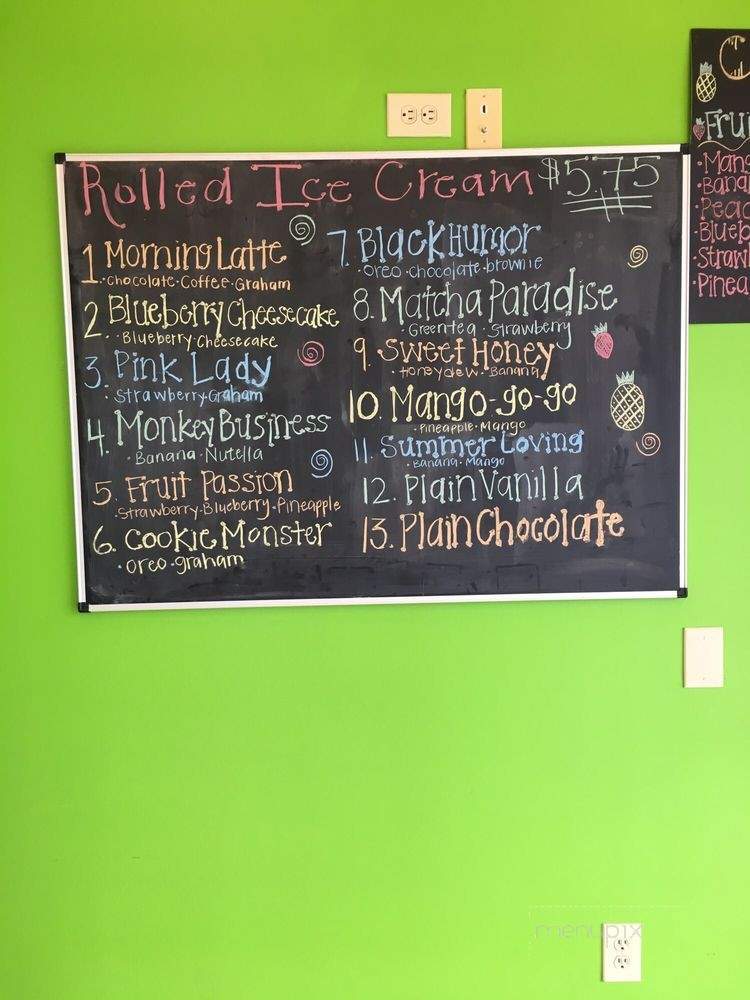 Rolled Ice Cream $5.75
1 Morning Latte
·Chocolate·Coffee·Graham
2. Blueberry Cheesecake
·Blueberry·Cheesecake
3. Pink Lady
·Strawberry·Graham
4. Monkey Business
·Banana·Nutella
5. Fruit Passion
·Strawberry·Blueberry·Pineapple
6. Cookie Monster
·oreo·graham
7. Black Humor
·Oreo·chocolate·brownie
8. Matcha Paradise
·Greentea·Strawberry
9. Sweet Honey
·Honeydew·Banana
10. Mango-go-go
·Pineapple·Mango
11. Summer Loving
·Banana·Mango
12. Plain Vanilla
13. Plain Chocolate
menupix